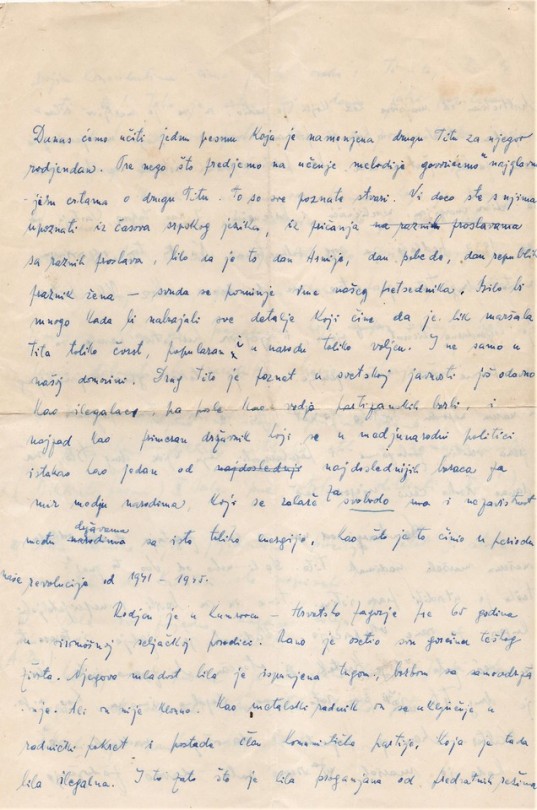 Danas ćemo učiti jednu pesmu koja je namenjena drugu Titu za njegov
rodjendan. Pre nego što predjemo na učenje melodije govorićemo u najglavni-
jim crtama o drugu Titu. To su sve poznate stvari. Vi deco ste s njima
upoznati iz časova srpskog jezika, iz pričanja na raznih proslavama
sa raznih proslava, bilo da je to dan Armije, dan pobede, dan republike
praznik žena — svuda se pominje ime našeg pretsednika. Bilo bi
mnogo kada bi nabrajali sve detalje koji čine da je lik maršala
Tita toliko čvrst, popularan i u narodu toliko voljen. I ne samo u
našoj domovini. Drug Tito je poznat u svetskoj javnosti još odavno
kao ilegalac, pa posle kao vodja partizanskih borbi, i
najzad kao priznan državnik koji se u medjunarodnoj politici
istakao kao jedan od najdoslednij najdoslednijih boraca za
mir medju narodima, koji se zalaže za svobodo ma i nezavistnost
medu narodima državama sa isto toliko energije, kao što ja to činio u periodu
naše revolucije od 1941 - 1945.
Rodjen je u Kumrovcu — Hrvatsko Zagorje pre 65 godina
u siromašnoj seljačkoj porodici. Rano je osetio svu gorčinu teškog
života. Njegova mladost bila je ispunjena tugom, borbom za samoodrža-
nije. Ali on nije klonuo. Kao metalski radnik on se uključuje u
radnički pokret i postaje član Komunističke partije, koja je tada
bila ilegalna. I to zato što je bila proganjana od predratnih režima